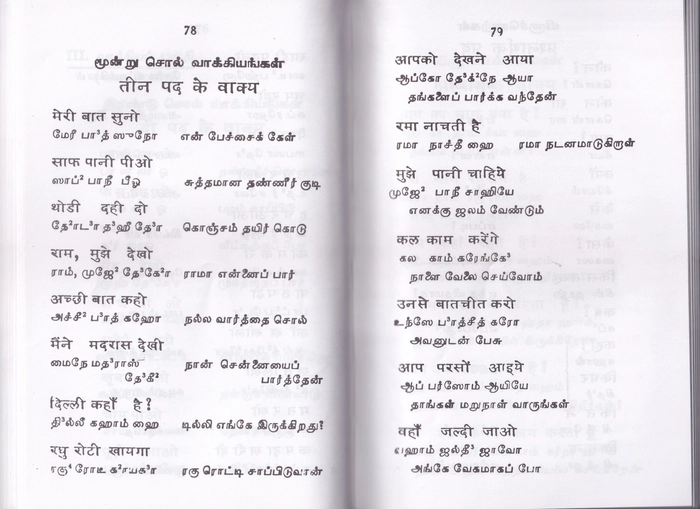 78
மூன்று சொல் வாக்கியங்கள்
तीन पद के वाक्य
मेरी बात सुनो
மேரீ பா³த் ஸுநோ என் பேச்சைக் கேள்
साफ पानी पीओ
ஸாப்² பாநீ பீஓ சுத்தமான தண்ணீர் குடி
थोडी दही दो
தே²ாட³ா த³ஹீ தே³ா கொஞ்சம் தயிர் கொடு
राम, मुझे देखो
ராம், முஜே² தே³கே²ா ராமா என்னைப் பார்
अच्छी बात कहो
அச்சீ² ப³ாத் கஹோ நல்ல வார்த்தை சொல்
मैंने मदरास देखी
மைநே மத³ராஸ் நான் சென்னையைப்
தே³கீ² பார்த்தேன்
दिल्ली कहाँ है?
தி³ல்லீ கஹாம் ஹை டில்லி எங்கே இருக்கிறது?
रघु रोटी खायगा
ரகு⁴ ரோடீ க²ாயக³ா ரகு ரொட்டி சாப்பிடுவான்
79
आपको देखने आया
ஆப்கோ தே³க்²நே ஆயா
தங்களைப் பார்க்க வந்தேன்
रमा नाचती है
ரமா நாச்தீ ஹை ரமா நடனமாடுகிறாள்
मुझे पानी चाहिये
முஜே² பாநீ சாஹியே
எனக்கு ஜலம் வேண்டும்
कल काम करेंगे
கல காம் கரேங்கே³
நாளை வேலை செய்வோம்
उनसे बातचीत करो
உந்ஸே ப³ாத்சீத் கரோ
அவனுடன் பேசு
आप परसों आइये
ஆப் பர்ஸோம் ஆயியே
தாங்கள் மறுநாள் வாருங்கள்
वहाँ जल्दी जाओ
வஹாம் ஜல்தீ³ ஜாவோ
அங்கே வேகமாகப் போ